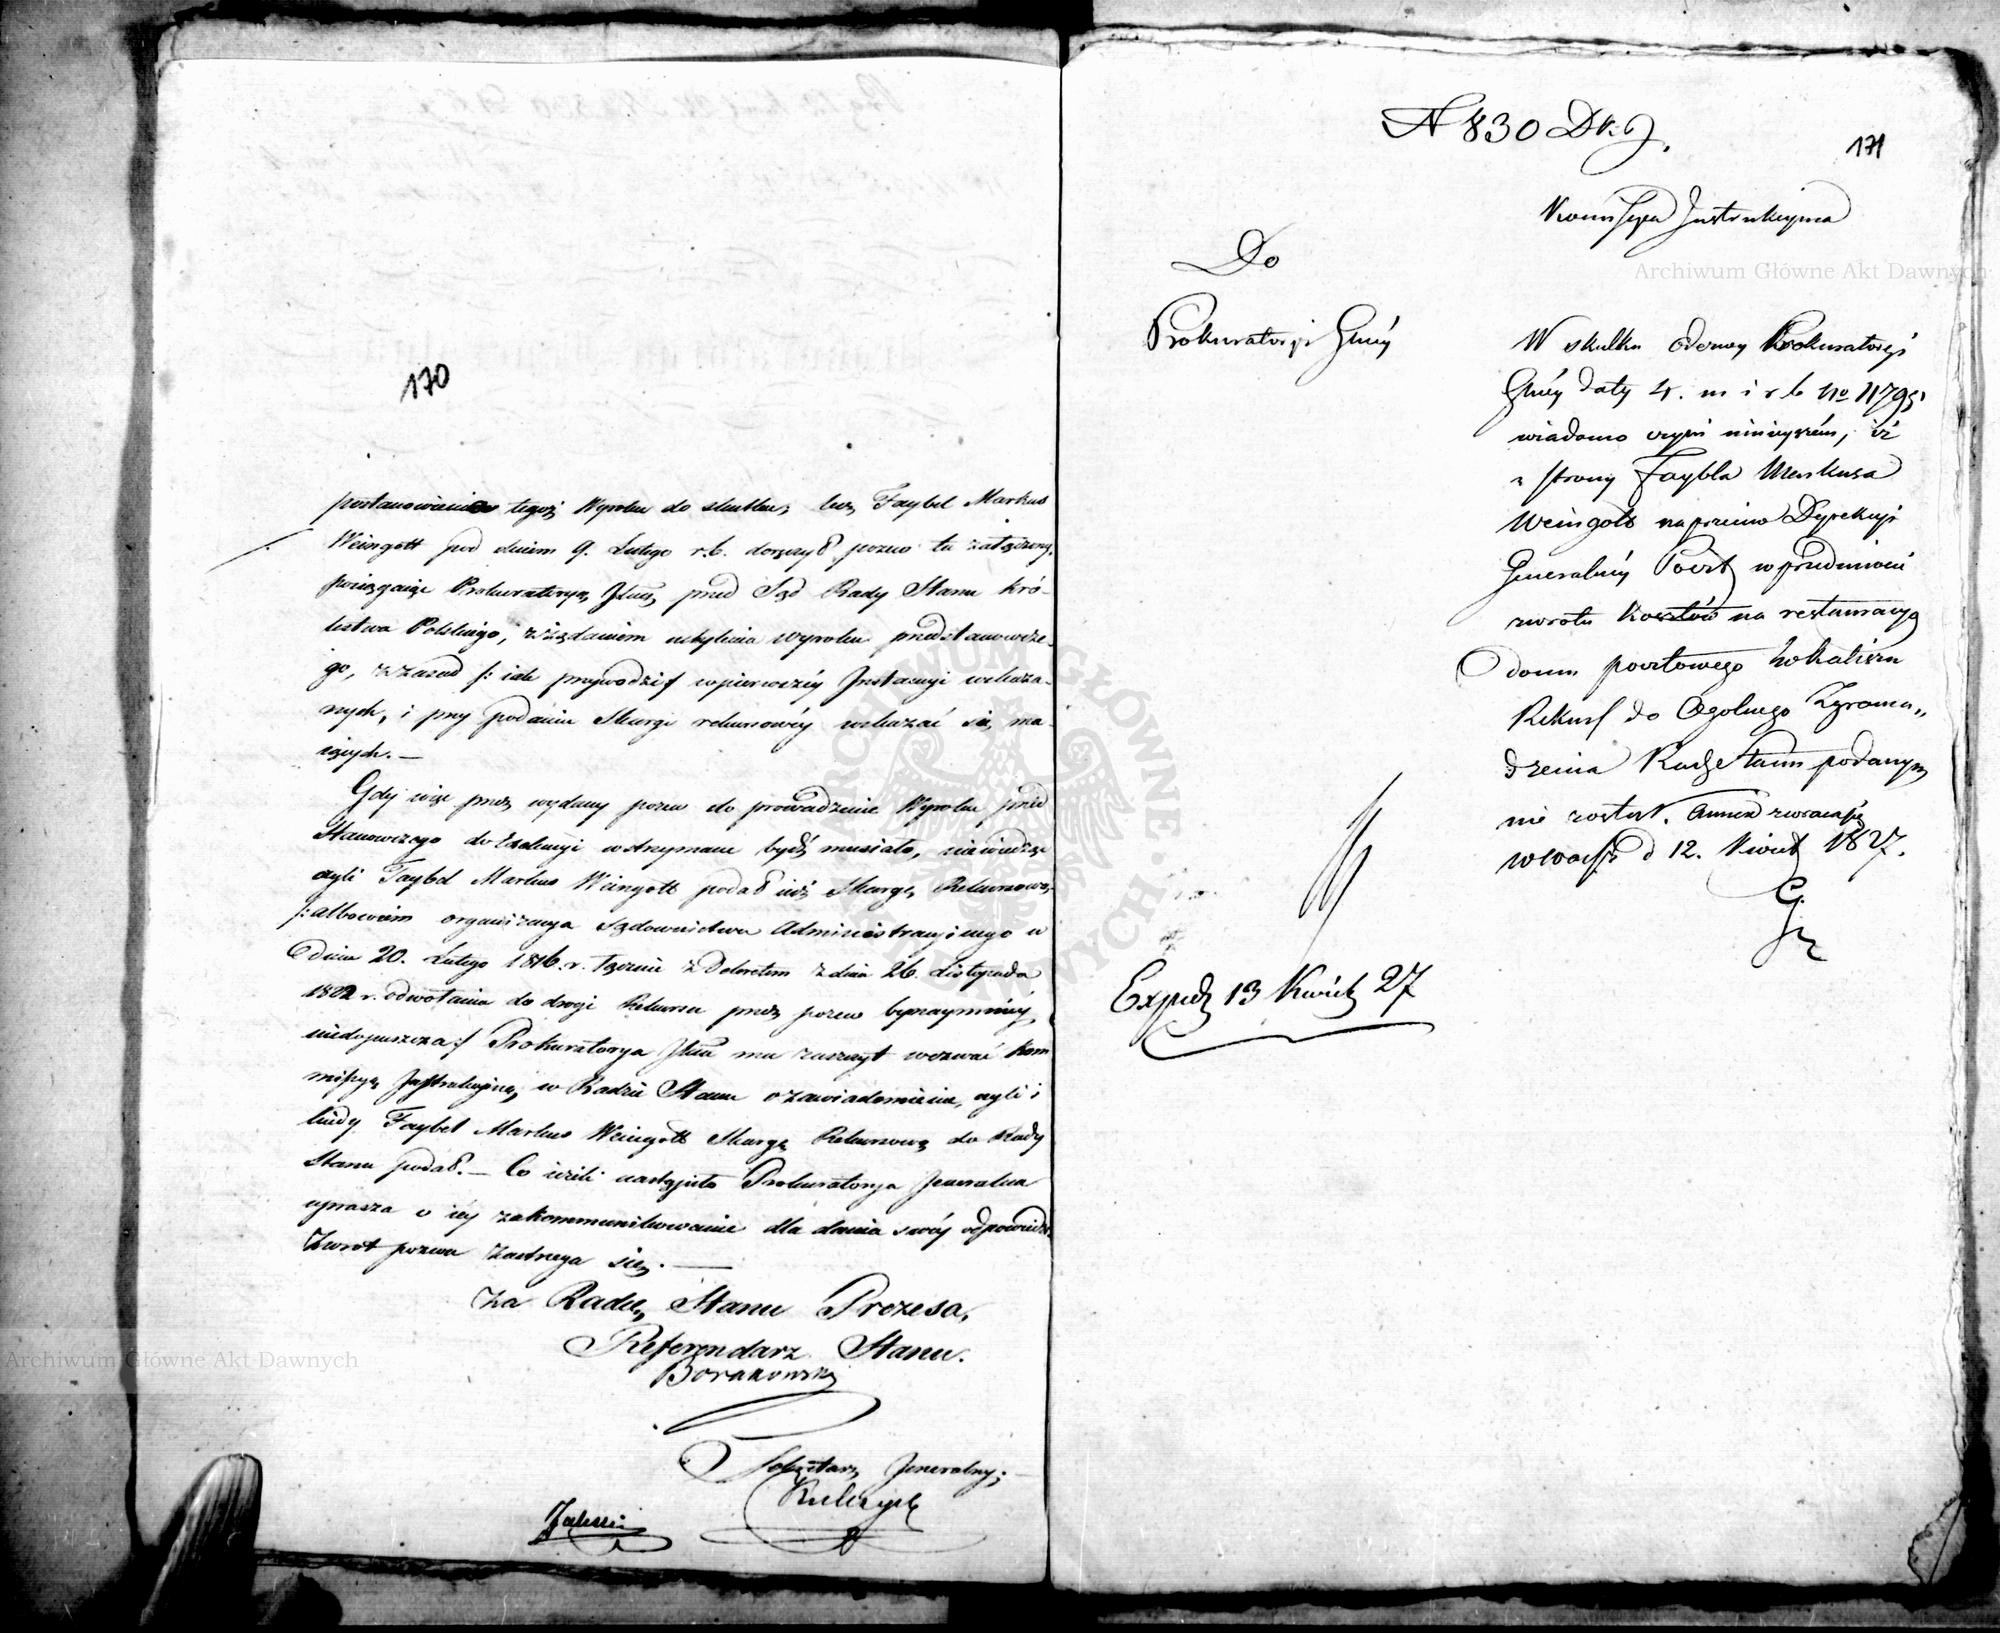 170
postanowienia tegoż Wyroku do skutku, lecz Faybel Markus
Weingott pod dniem 9. Lutego r.b. doręczył pozew tu załączony,
pociągaiąc Prokuratoryą Jlną przed Sąd Rady Stanu Kró-
lestwa Polskiego, z żądaniem uchylenia wyroku przedstanowcze-
go, z zasad /: iak przywodzi :/ w pierwszéy Instancyi wskaza-
nych, i przy podaniu Skargi rekursowéy wskazać się ma-
iących. —
Gdy więc przez wydany pozew do prowadzenie Wyroku przed
Stanowczego do Exekucyi wstrzymane bydź musiało, niewiedząc
czyli Faybel Markus Weingott podał iuż Skargę Rekursową,
/: albowiem organizacya Sądownictwa Administracyinego w
dniu 20. Lutego 1816. r. łącznie z Dekretem z dnia 26. Listopada
1822 r. odwołania do drogi Rekursu przez pozew bynaymniéy
niedopuszcza :/ Prokuratorya Jlna ma zaszczyt wezwać Kom
missyą Instrukcyiną w Radzie Stanu o zawiadomienie, czyli i
kiedy Faybel Markus Weingott Skargę Rekursową do Rady
Stanu podał. — Co ieżeli nastąpiło Prokuratorya Jeneralna
uprasza o iéy zakommunikowanie dla dania swéj odpowiedzi.
Zwrot pozwu zastrzega się. —
Za Radcę Stanu Prezesa,
Referendarz Stanu.
Borakowski
Sekretarz Jeneralny;
Kulczycki
Zaleski
N 830 Dr. J.
171
Kommissya Instrukcyina
Do
Prokuratoryi Glnéy
W skutku odezwy Prokuratoryi
Glnéy daty 4. m i r b No 11795
wiadomo czyni ninieyszém, iż
z strony Faybla Markusa
Weingott naprzeciw Dyrekcyi
Generalnéy Poczt w przedmiocie
zwrotu kosztów na restauracyą
domu pocztowego łożonych
Rekurs do Ogolnego Zgroma„
dzenia Rady Stanu podanym
nie został. Annexa zwracaią się
w Warsz d 12. Kwiet 1827.
G.
Exped 13 Kwiet 27
Archiwum Główne Akt Dawnych
Archiwum Główne Akt Dawnych
ARCHIWUM GŁÓWNE AKT DAWNYCH